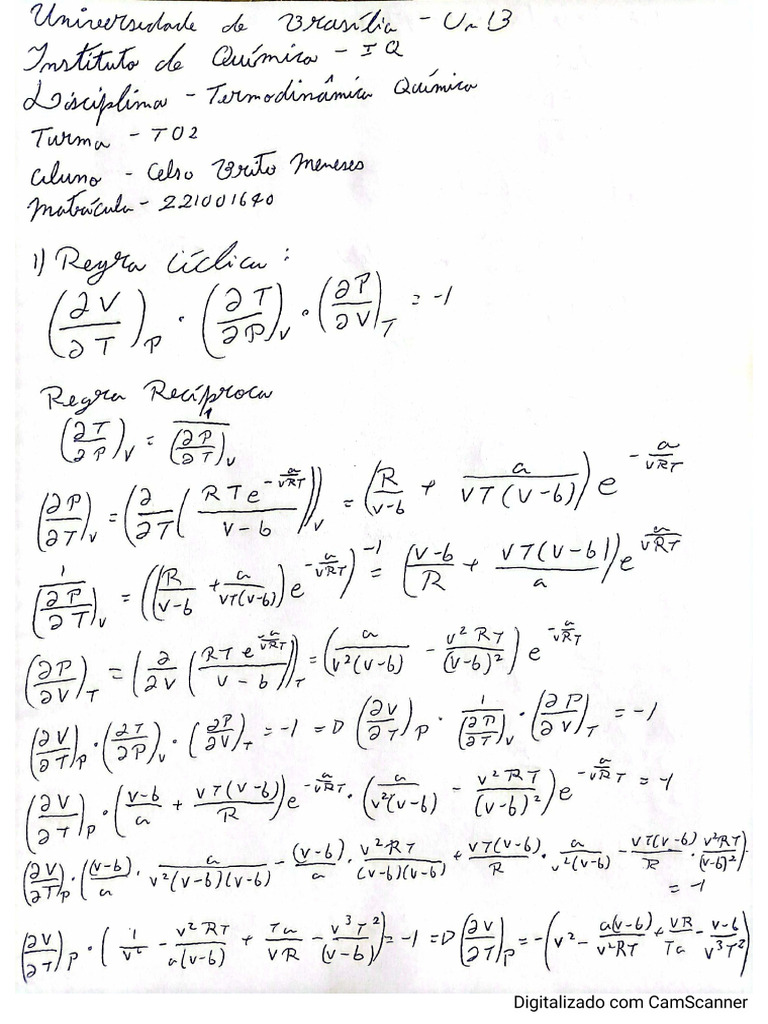 Universidade de Brasília - UnB
Instituto de Química - IQ
Disciplina - Termodinâmica Química
Turma - T02
Aluno - Celso Brito Meneses
Matrícula - 221001640
1) Regra Cíclica :
(∂V/∂T)_P · (∂T/∂P)_V · (∂P/∂V)_T = -1
Regra Recíproca
(∂T/∂P)_V = 1/(∂P/∂T)_V
(∂P/∂T)_V = (∂/∂T (RTe^(-a/VRT)/(V-b)))_V = (R/(V-b) + a/(VT(V-b))) e^(-a/VRT)
1/(∂P/∂T)_V = ((R/(V-b) + a/(VT(V-b))) e^(-a/VRT))^-1 = ((V-b)/R + VT(V-b)/a) e^(a/VRT)
(∂P/∂V)_T = (∂/∂V (RTe^(-a/VRT)/(V-b)))_T = (a/(V²(V-b)) - V²RT/(V-b)²) e^(-a/VRT)
(∂V/∂T)_P · (∂T/∂P)_V · (∂P/∂V)_T = -1 => (∂V/∂T)_P · 1/(∂P/∂T)_V · (∂P/∂V)_T = -1
(∂V/∂T)_P · ((V-b)/a + VT(V-b)/R) e^(-a/VRT) · (a/(V²(V-b)) - V²RT/(V-b)²) e^(-a/VRT) = -1
(∂V/∂T)_P · ((V-b)/a · a/(V²(V-b)(V-b)) - (V-b)/a · V²RT/((V-b)(V-b)) + VT(V-b)/R · a/(V²(V-b)) - VT(V-b)/R · V²RT/(V-b)²) = -1
(∂V/∂T)_P · (1/V² - V²RT/(a(V-b)) + Ta/(VR) - V³T²/(V-b)) = -1 => (∂V/∂T)_P = -(V² - a(V-b)/(V²RT) + VR/(Ta) - (V-b)/(V³T²))
Digitalizado com CamScanner